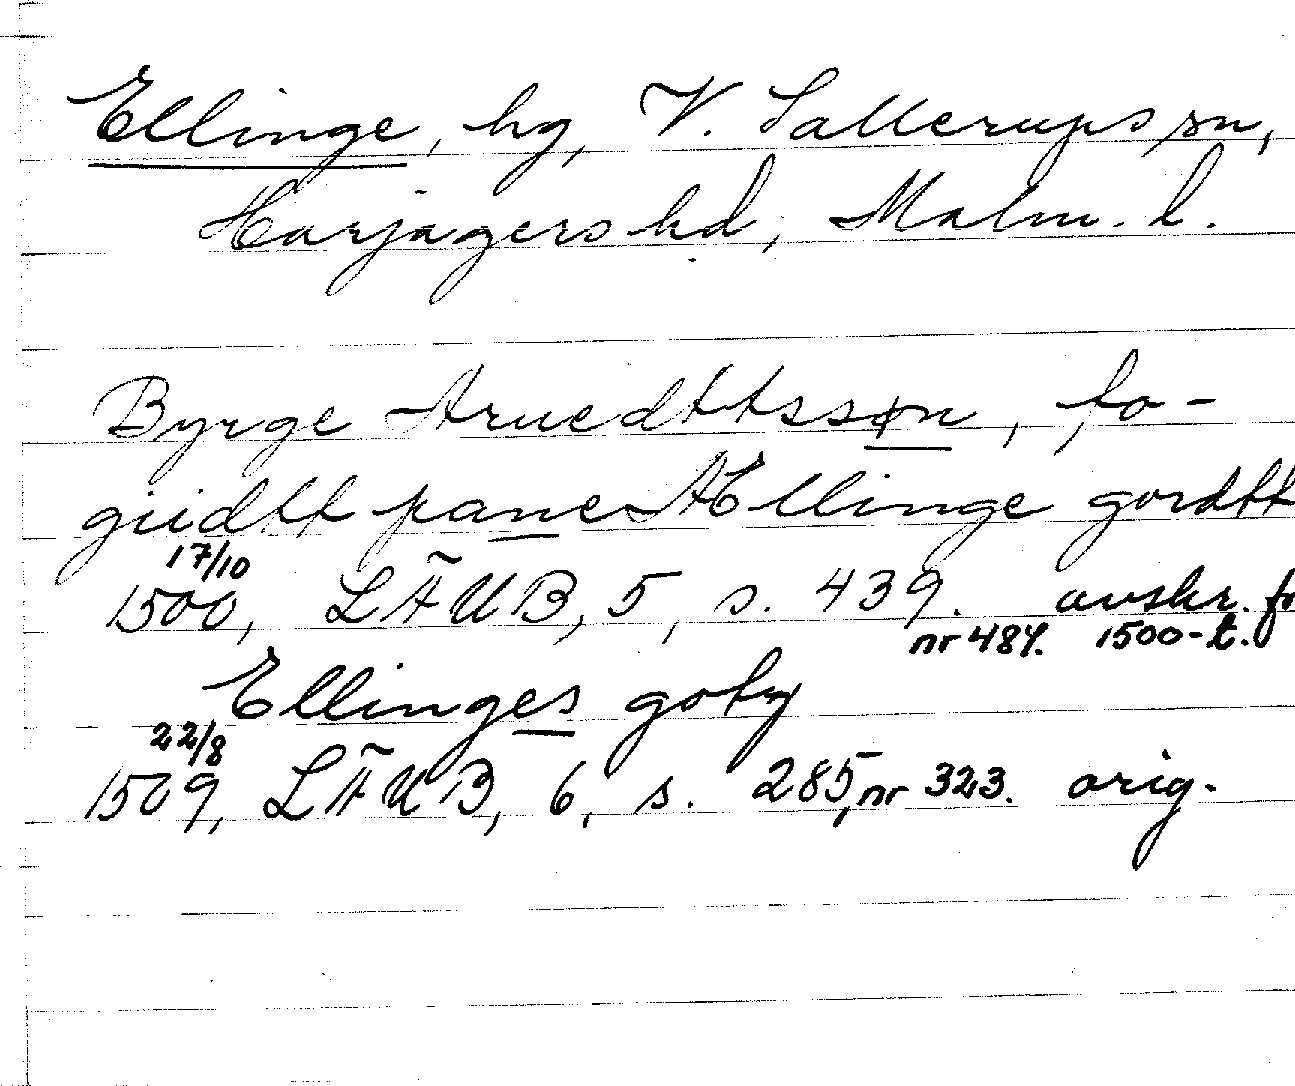 Ellinge, hg, V. Sallerups sn,
Harjagers hd, Malm. l.
Byrge Aruedttssøn, fo-
giidtt pane Ællinge gordtt
17/10
1500, LÄUB, 5, s. 439. avskr. fr
nr 484. 1500-t.
Ellinges goty
22/8
1509, LÄUB, 6, s. 285, nr 323. orig.